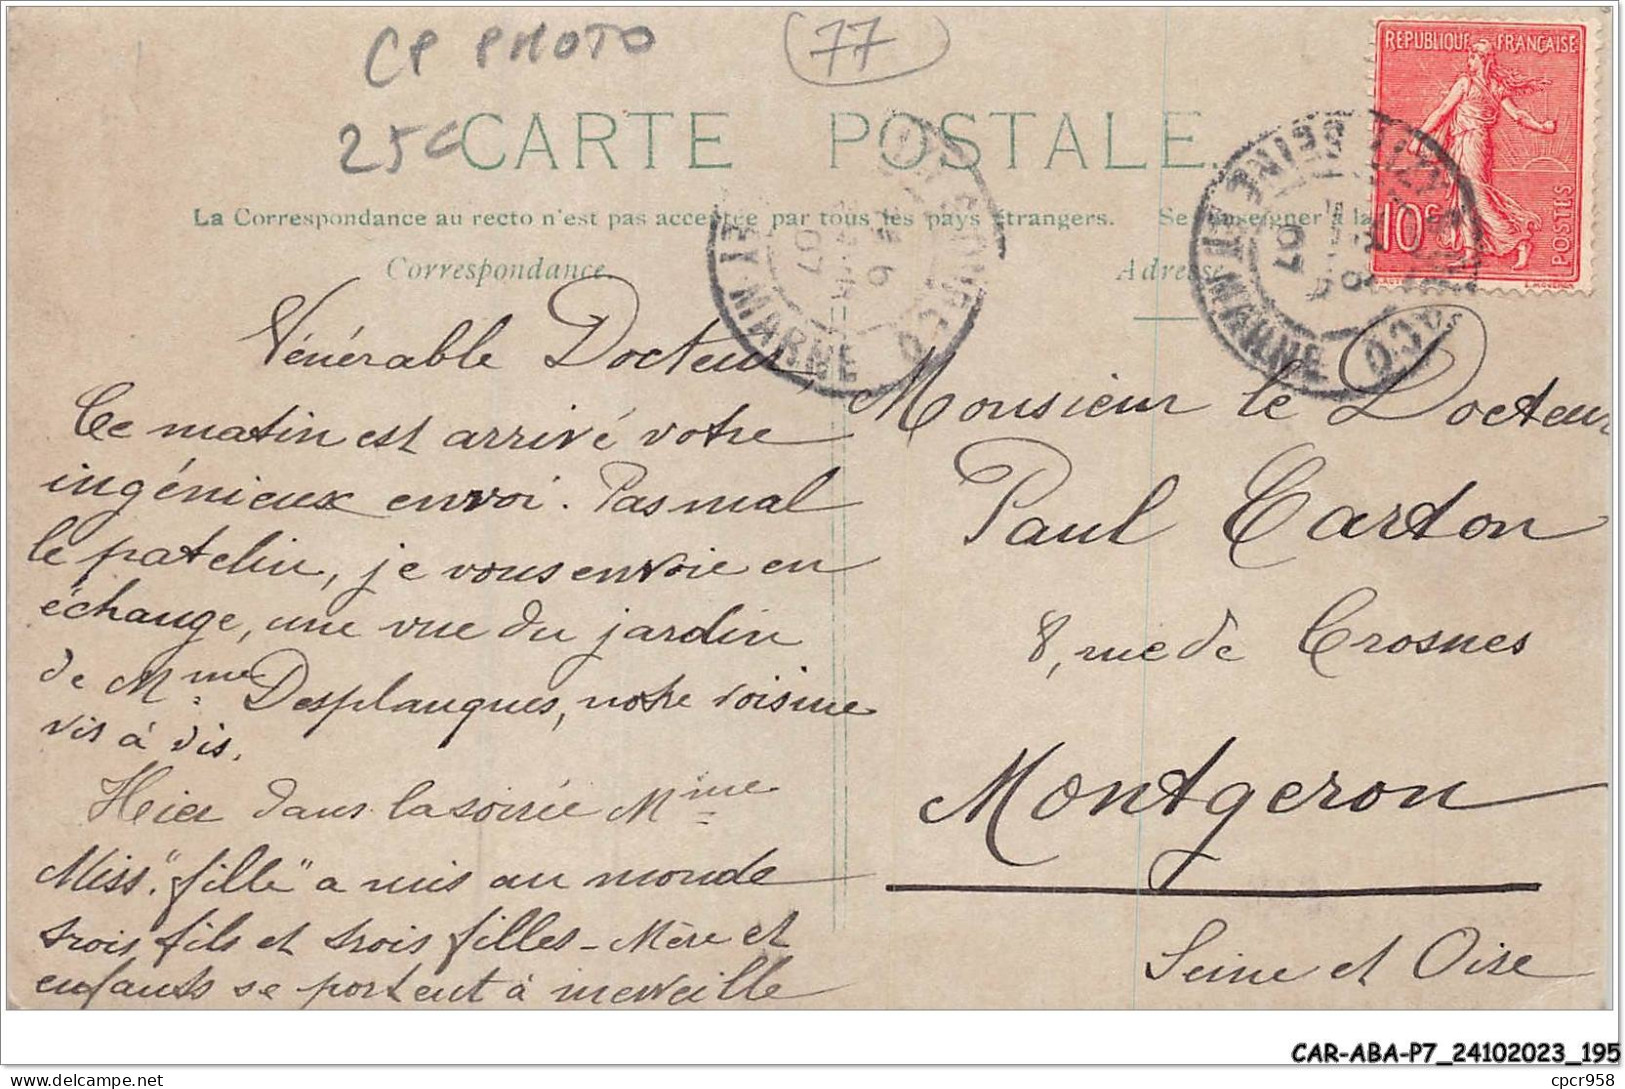 CP PHOTO
77
25€
CARTE POSTALE.
La Correspondance au recto n'est pas acceptée par tous les pays étrangers. Se renseigner à la
Correspondance
Adresse
REPUBLIQUE FRANÇAISE
10c
POSTES
ET MARNE
07
SEINE ET MARNE
07
Vénérable Docteur,
Ce matin est arrivé votre
ingénieux envoi. Pas mal
le patelin, je vous envoie en
échange, une vue du jardin
de Mme Desplanques, notre voisine
vis à vis.
Hier dans la soirée Mme
Miss. "fille" a mis au monde
trois fils et trois filles - Mère et
enfants se portent à merveille
Monsieur le Docteur
Paul Carton
8, rue de Crosnes
Montgeron
Seine et Oise
CAR-ABA-P7_24102023_195
cpcr958